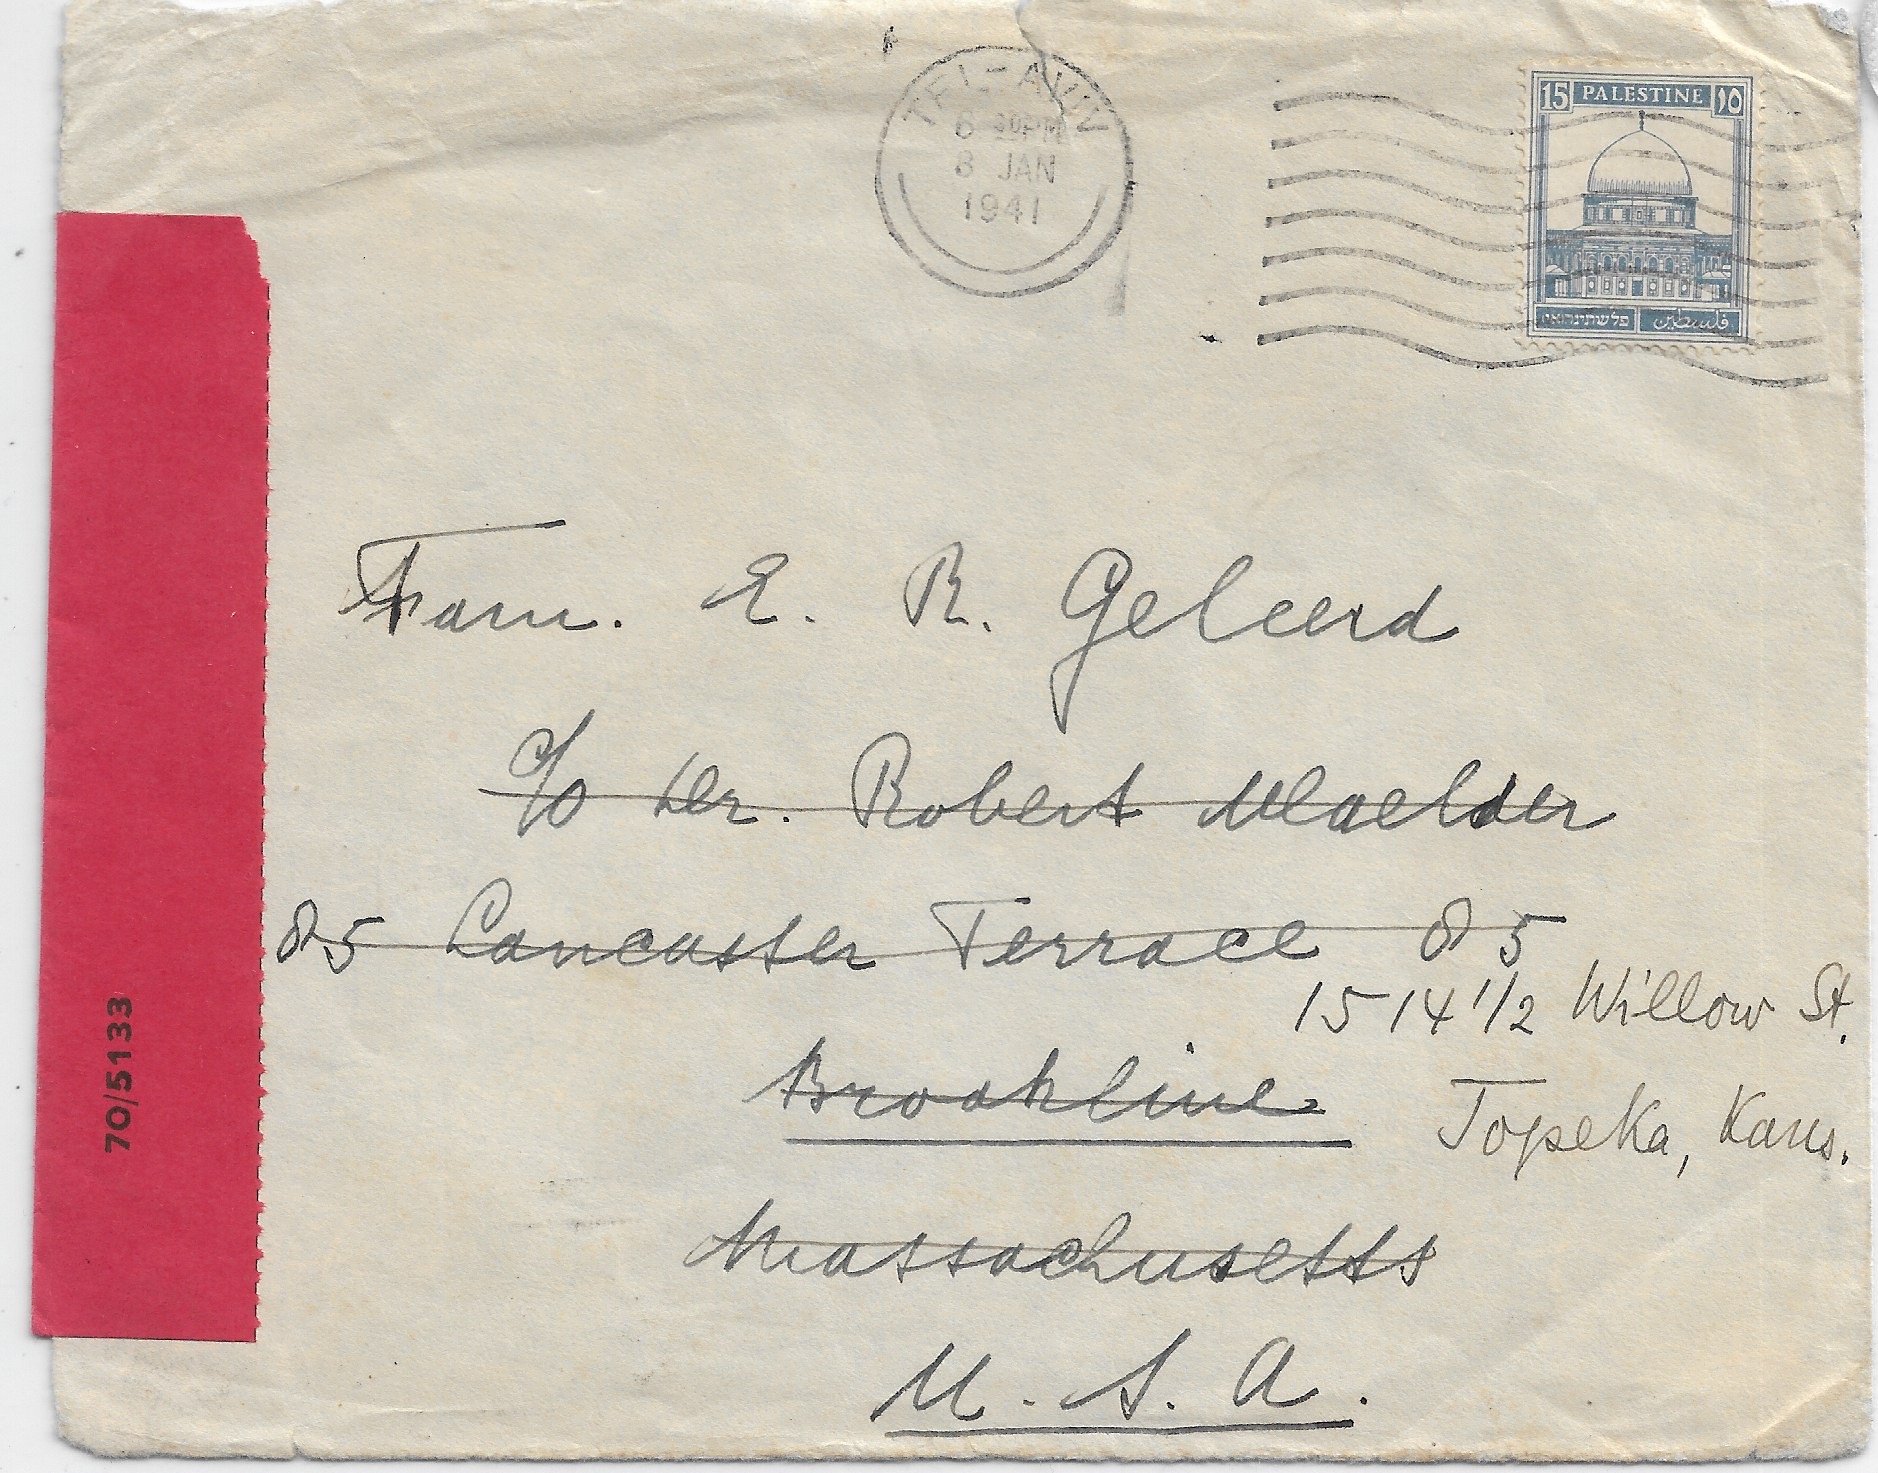 TEL-AVIV
6 30PM
8 JAN
1941
15 PALESTINE ١٥
פלשתינה א״י فلسطين
Fam. E. R. Geleerd
c/o Dr. Robert Waelder
85 Lancaster Terrace 85
1514 1/2 Willow St.
Brookline
Topeka, Kans.
Massachusetts
U. S. A.
70/5133